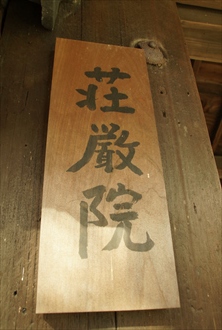 荘厳院